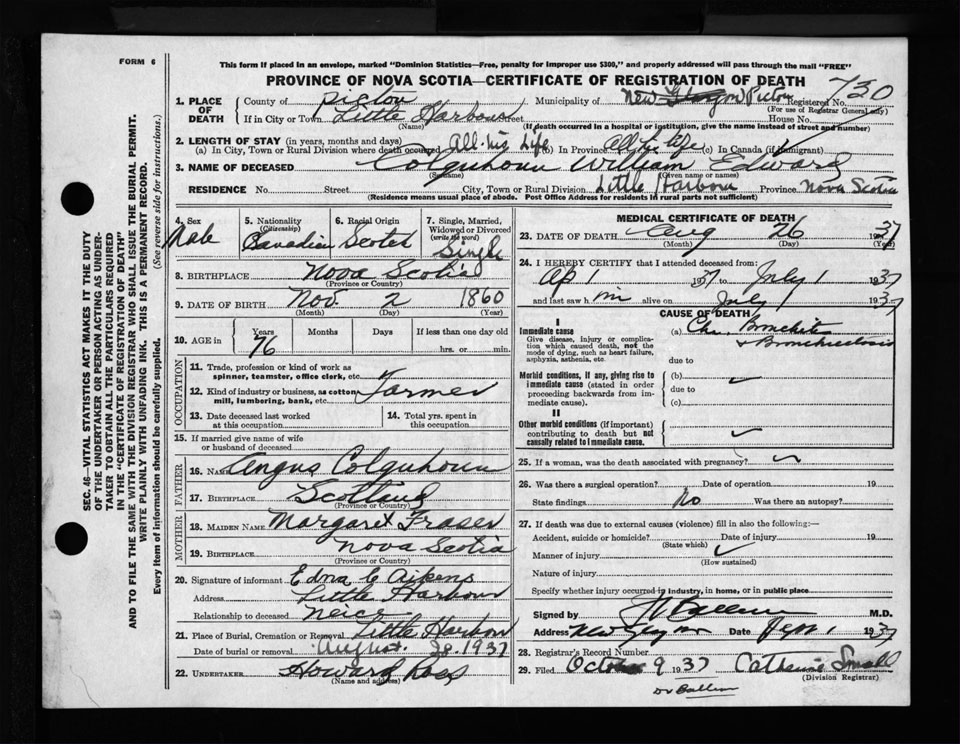 FORM 6
This form if placed in an envelope, marked "Dominion Statistics—Free, penalty for improper use $300," and properly addressed will pass through the mail "FREE"
PROVINCE OF NOVA SCOTIA—CERTIFICATE OF REGISTRATION OF DEATH
1. PLACE OF DEATH County of Pictou Municipality of New Glasgow Pictou Registered No. 730
(For use of Registrar General only)
If in City or Town Little Harbour Street House No.
(Name) (If death occurred in a hospital or institution, give the name instead of street and number)
2. LENGTH OF STAY (in years, months and days)
(a) In City, Town or Rural Division where death occurred All his Life (b) In Province All his life (c) In Canada (if immigrant)
3. NAME OF DECEASED Colquhoun William Edward
(Surname) (Given name or names)
RESIDENCE No. Street City, Town or Rural Division Little Harbour Province Nova Scotia
(Residence means usual place of abode. Post Office Address for residents in rural parts not sufficient)
4. Sex Male
5. Nationality (Citizenship) Canadian
6. Racial Origin Scotch
7. Single, Married, Widowed or Divorced (write the word) Single
8. BIRTHPLACE Nova Scotia
(Province or Country)
9. DATE OF BIRTH Nov. 2 1860
(Month) (Day) (Year)
10. AGE in Years 76 Months Days If less than one day old
hrs. or min.
OCCUPATION
11. Trade, profession or kind of work as spinner, teamster, office clerk, etc.
12. Kind of industry or business, as cotton mill, lumbering, bank, etc. Farmer
13. Date deceased last worked at this occupation
14. Total yrs. spent in this occupation
15. If married give name of wife or husband of deceased
FATHER
16. NAME Angus Colquhoun
17. BIRTHPLACE Scotland
(Province or Country)
MOTHER
18. MAIDEN NAME Margaret Fraser
19. BIRTHPLACE Nova Scotia
(Province or Country)
20. Signature of informant Edna C Aikens
Address Little Harbour
Relationship to deceased Neice
21. Place of Burial, Cremation or Removal Little Harbour
Date of burial or removal August 28. 1937
22. UNDERTAKER Howard Ross
(Name and address)
MEDICAL CERTIFICATE OF DEATH
23. DATE OF DEATH Aug 26 1937
(Month) (Day) (Year)
24. I HEREBY CERTIFY that I attended deceased from:
Ap 1 1937 to July 1 1937
and last saw him alive on July 1 1937
CAUSE OF DEATH
I
Immediate cause (a) Chr. Bronchitis
Give disease, injury or complication which caused death, not the mode of dying, such as heart failure, asphyxia, asthenia, etc.
& Bronchiectasis
due to
Morbid conditions, if any, giving rise to immediate cause (stated in order proceeding backwards from immediate cause).
(b)
due to
(c)
II
Other morbid conditions (if important) contributing to death but not causally related to immediate cause.
25. If a woman, was the death associated with pregnancy?
26. Was there a surgical operation? Date of operation 19
State findings No Was there an autopsy?
27. If death was due to external causes (violence) fill in also the following:—
Accident, suicide or homicide? Date of injury 19
(State which)
Manner of injury
(How sustained)
Nature of injury
Specify whether injury occurred in industry, in home, or in public place
Signed by M.D.
Address New Glasgow Date Sep 1 1937
28. Registrar's Record Number
29. Filed October 9 1937 Catherine Small
(Division Registrar)
SEC. 46—VITAL STATISTICS ACT MAKES IT THE DUTY
OF THE UNDERTAKER OR PERSON ACTING AS UNDERTAKER
TO OBTAIN ALL THE PARTICULARS REQUIRED
IN THE "CERTIFICATE OF REGISTRATION OF DEATH"
AND TO FILE THE SAME WITH THE DIVISION REGISTRAR WHO SHALL ISSUE THE BURIAL PERMIT.
WRITE PLAINLY WITH UNFADING INK. THIS IS A PERMANENT RECORD.
Every item of information should be carefully supplied. (See reverse side for instructions.)